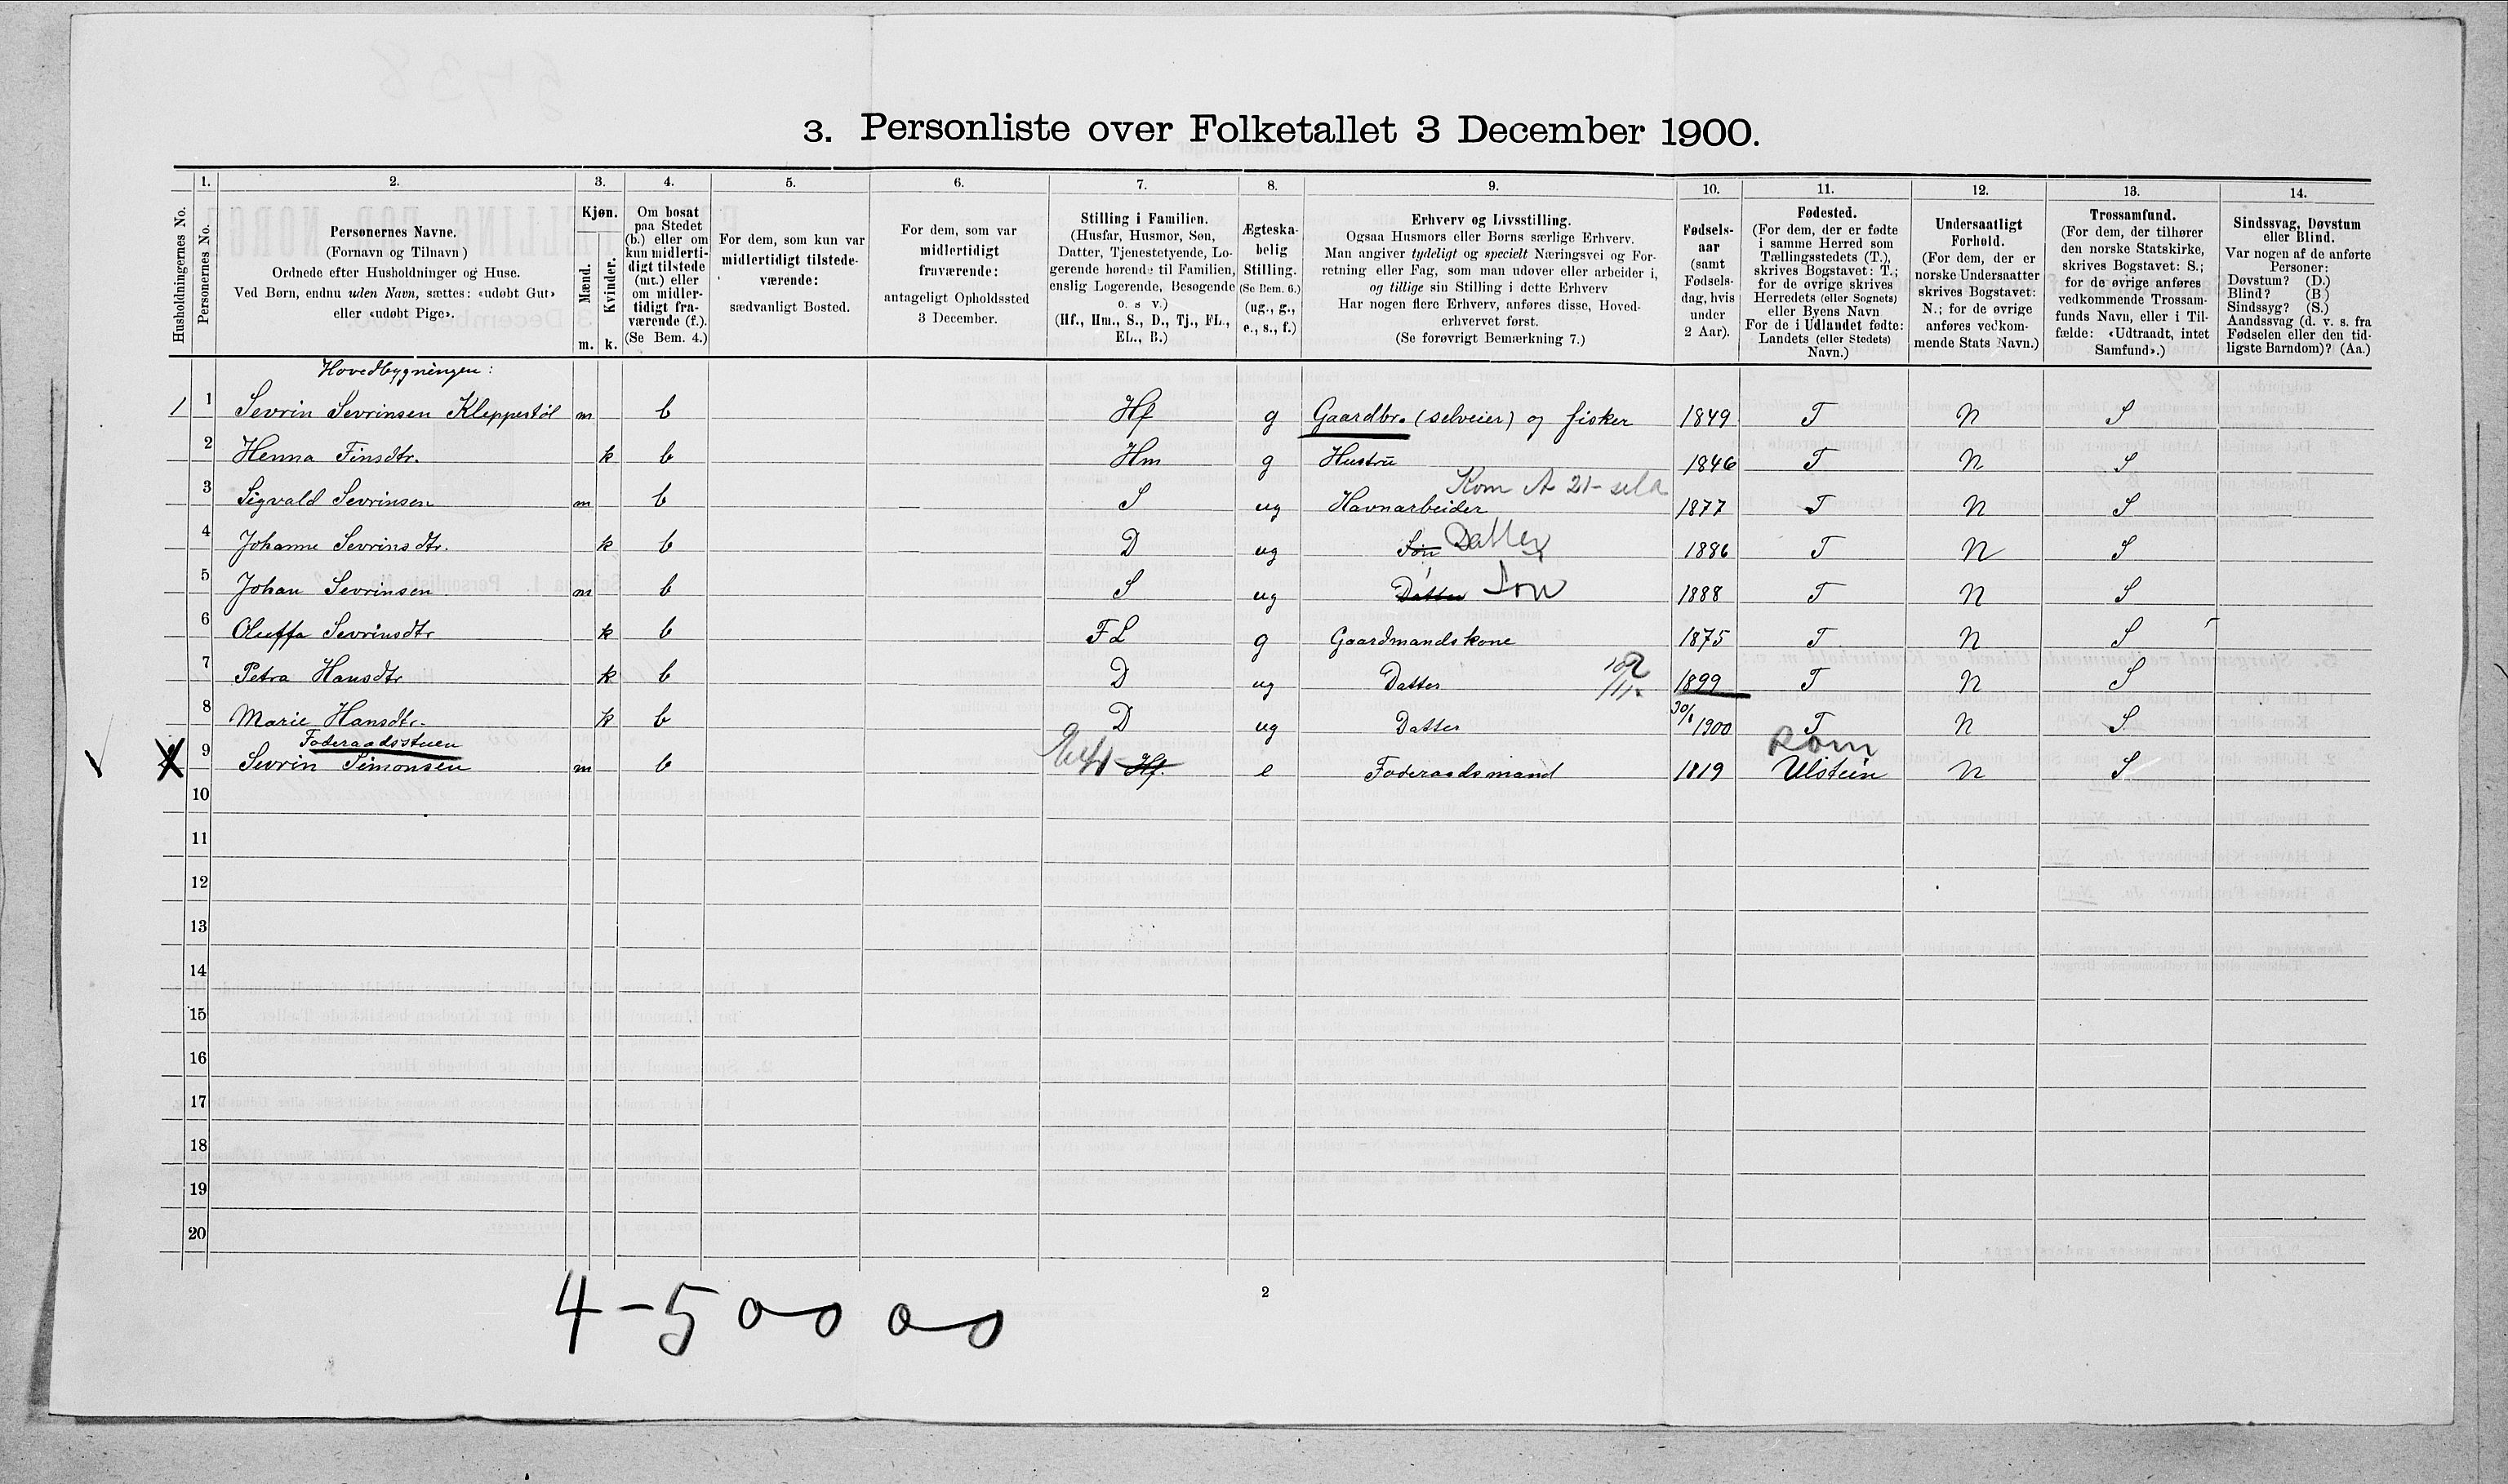 3. Personliste over Folketallet 3 December 1900.
1. 2. 3. 4. 5. 6. 7. 8. 9. 10. 11. 12. 13. 14.
Husholdningernes No.
Personernes No.
Personernes Navne.
(Fornavn og Tilnavn)
Ordnede efter Husholdninger og Huse.
Ved Børn, endnu uden Navn, sættes: «udøbt Gut»
eller «udøbt Pige».
Kjøn.
Mænd.
Kvinder.
m. k.
Om bosat
paa Stedet
(b.) eller om
kun midlerti-
digt tilstede
(mt.) eller
om midler-
tidigt fra-
værende (f.).
(Se Bem. 4.)
For dem, som kun var
midlertidigt tilstede-
værende:
sædvanligt Bosted.
For dem, som var
midlertidigt
fraværende:
antageligt Opholdssted
3 December.
Stilling i Familien.
(Husfar, Husmor, Søn,
Datter, Tjenestetyende, Lo-
gerende hørende til Familien,
enslig Logerende, Besøgende
o. s. v.)
(Hf., Hm., S., D., Tj., FL.,
EL., B.)
Ægteska-
belig
Stilling.
(Se Bem. 6.)
(ug., g.,
e., s., f.)
Erhverv og Livsstilling.
Ogsaa Husmors eller Børns særlige Erhverv.
Man angiver tydeligt og specielt Næringsvei og For-
retning eller Fag, som man udøver eller arbeider i,
og tillige sin Stilling i dette Erhverv
Har nogen flere Erhverv, anføres disse, Hoved-
erhvervet først.
(Se forøvrigt Bemærkning 7.)
Fødsels-
aar
(samt
Fødsels-
dag, hvis
under
2 Aar).
Fødested.
(For dem, der er fødte
i samme Herred som
Tællingsstedets (T.),
skrives Bogstavet: T.;
for de øvrige skrives
Herredets (eller Sognets)
eller Byens Navn
For de i Udlandet fødte:
Landets (eller Stedets)
Navn.)
Undersaatligt
Forhold.
(For dem, der er
norske Undersaatter
skrives Bogstavet:
N.; for de øvrige
anføres vedkom-
mende Stats Navn.)
Trossamfund.
(For dem, der tilhører
den norske Statskirke,
skrives Bogstavet: S.;
for de øvrige anføres
vedkommende Trossam-
funds Navn, eller i Til-
fælde: «Udtraadt, intet
Samfund».)
Sindssvag, Døvstum
eller Blind.
Var nogen af de anførte
Personer:
Døvstum? (D.)
Blind? (B.)
Sindssyg? (S.)
Aandssvag (d. v. s. fra
Fødselen eller den tid-
ligste Barndom)? (Aa.)
Hovedbygningen:
1 1 Sevrin Sevrinsen Kleppestøl m b Hf g Gaardbr. (selveier) og fisker 1849 T N S
2 Henna Finsdtr. k b Hm g Hustru 1846 T N S
Kom A 21-
3 Sigvald Sevrinsen m b S ug Havnarbeider 1877 T N S
4 Johanne Sevrinsdtr. k b D ug Søn Datter 1886 T N S
5 Johan Sevrinsen m b S ug Datter Søn 1888 T N S
6 Oluffa Sevrinsdtr k b FL g Gaardmandskone 1875 T N S
7 Petra Hansdtr k b D ug Datter 1899 T N S
8 Marie Hansdtr. k b D ug Datter 1900 T N S
Føderaadsstuen
9 Sevrin Simonsen m b Hf. e Føderaadsmand 1819 Ulstein N S
10
11
12
13
14
15
16
17
18
19
20
2
4-5 00 00